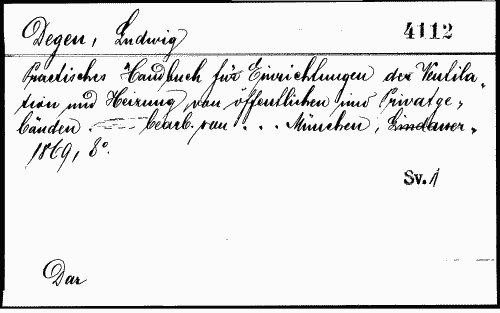 Degen, Ludwig 4112
Practisches Handbuch für Einrichtungen der Ventila-
tion und Heizung von öffentlichen und Privatge-
bäuden. bearb. von ... München, Lindauer,
1869, 8°.
Sv. 1
Dar